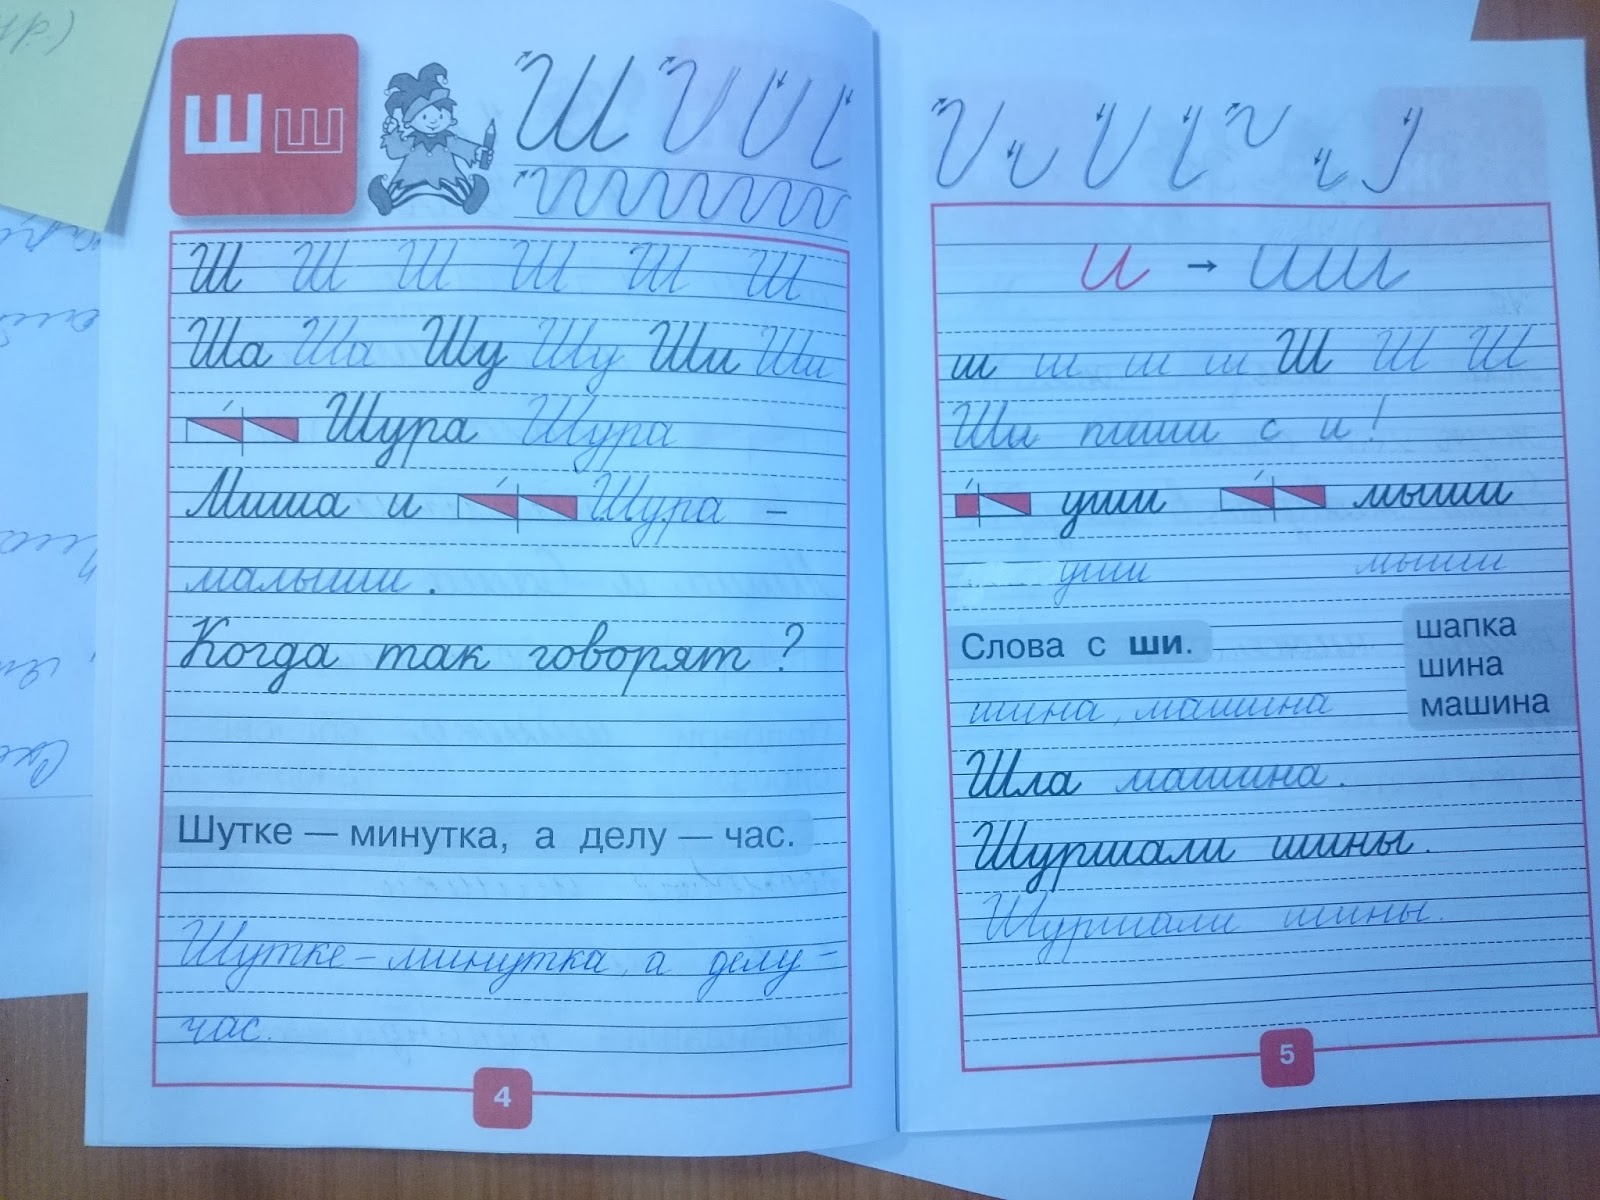 Ш ш
Ш
Ш Ш Ш Ш Ш Ш
Ша Ша Шу Шу Ши Ши
Шура Шура
Миша и Шура –
малыши.
Когда так говорят?
Шутке — минутка, а делу — час.
Шутке – минутка, а делу –
час.
4
и → ши
ш ш ш ш Ш Ш Ш
Ши пиши с и!
уши мыши
уши мыши
Слова с ши.
шапка
шина
машина
шина, машина
Шла машина.
Шуршали шины.
Шуршали шины.
5